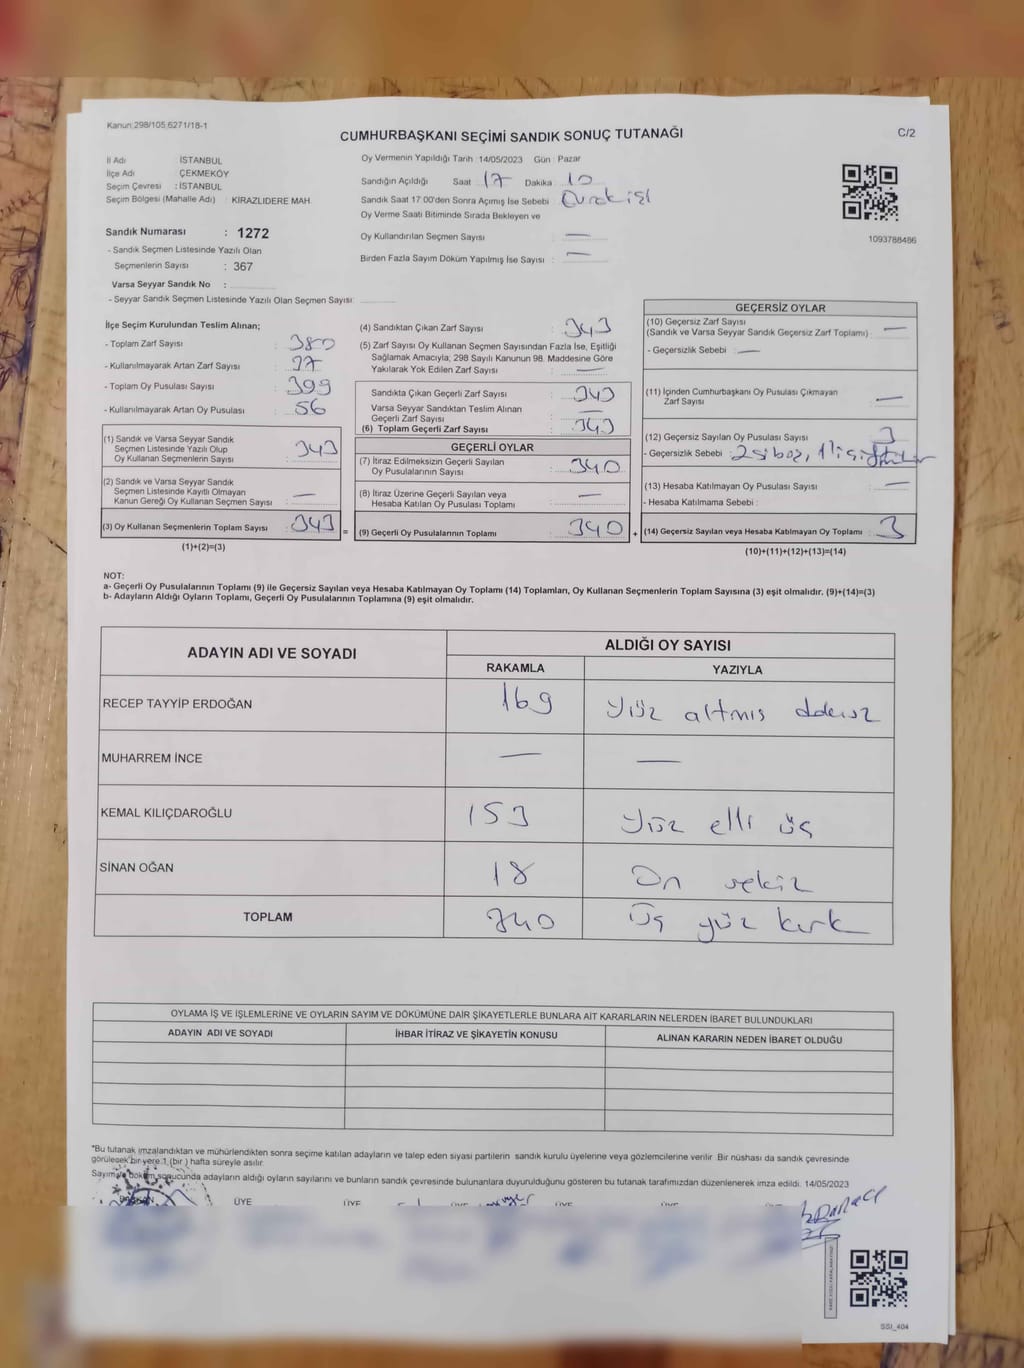 Kanun:298/105,6271/18-1
CUMHURBAŞKANI SEÇİMİ SANDIK SONUÇ TUTANAĞI
C/2
İl Adı İSTANBUL
İlçe Adı ÇEKMEKÖY
Seçim Çevresi : İSTANBUL
Seçim Bölgesi (Mahalle Adı) : KİRAZLIDERE MAH.
Sandık Numarası : 1272
- Sandık Seçmen Listesinde Yazılı Olan
Seçmenlerin Sayısı : 367
Varsa Seyyar Sandık No :
- Seyyar Sandık Seçmen Listesinde Yazılı Olan Seçmen Sayısı
Oy Vermenin Yapıldığı Tarih : 14/05/2023 Gün : Pazar
Sandığın Açıldığı Saat 17 Dakika 10
Sandık Saat 17:00'den Sonra Açımış İse Sebebi
Oy Verme Saati Bitiminde Sırada Bekleyen ve
Oy Kullandırılan Seçmen Sayısı : —
Birden Fazla Sayım Döküm Yapılmış İse Sayısı : —
1093788486
İlçe Seçim Kurulundan Teslim Alınan;
- Toplam Zarf Sayısı : 380
- Kullanılmayarak Artan Zarf Sayısı : 37
- Toplam Oy Pusulası Sayısı : 399
- Kullanılmayarak Artan Oy Pusulası : 56
(1) Sandık ve Varsa Seyyar Sandık
Seçmen Listesinde Yazılı Olup
Oy Kullanan Seçmenlerin Sayısı : 343
(2) Sandık ve Varsa Seyyar Sandık
Seçmen Listesinde Kayıtlı Olmayan
Kanun Gereği Oy Kullanan Seçmen Sayısı : —
(3) Oy Kullanan Seçmenlerin Toplam Sayısı : 343 =
(1)+(2)=(3)
(4) Sandıktan Çıkan Zarf Sayısı : 343
(5) Zarf Sayısı Oy Kullanan Seçmen Sayısından Fazla İse, Eşitliği
Sağlamak Amacıyla; 298 Sayılı Kanunun 98. Maddesine Göre
Yakılarak Yok Edilen Zarf Sayısı : —
Sandıkta Çıkan Geçerli Zarf Sayısı : 343
Varsa Seyyar Sandıktan Teslim Alınan
Geçerli Zarf Sayısı : —
(6) Toplam Geçerli Zarf Sayısı : 343
GEÇERLİ OYLAR
(7) İtiraz Edilmeksizin Geçerli Sayılan
Oy Pusulalarının Sayısı : 340
(8) İtiraz Üzerine Geçerli Sayılan veya
Hesaba Katılan Oy Pusulası Toplamı : —
(9) Geçerli Oy Pusulalarının Toplamı : 340 +
GEÇERSİZ OYLAR
(10) Geçersiz Zarf Sayısı
(Sandık ve Varsa Seyyar Sandık Geçersiz Zarf Toplamı) : —
- Geçersizlik Sebebi : —
(11) İçinden Cumhurbaşkanı Oy Pusulası Çıkmayan
Zarf Sayısı : —
(12) Geçersiz Sayılan Oy Pusulası Sayısı : 3
- Geçersizlik Sebebi :
(13) Hesaba Katılmayan Oy Pusulası Sayısı : —
- Hesaba Katılmama Sebebi :
(14) Geçersiz Sayılan veya Hesaba Katılmayan Oy Toplamı : 3
(10)+(11)+(12)+(13)=(14)
NOT:
a- Geçerli Oy Pusulalarının Toplamı (9) ile Geçersiz Sayılan veya Hesaba Katılmayan Oy Toplamı (14) Toplamları, Oy Kullanan Seçmenlerin Toplam Sayısına (3) eşit olmalıdır. (9)+(14)=(3)
b- Adayların Aldığı Oyların Toplamı, Geçerli Oy Pusulalarının Toplamına (9) eşit olmalıdır.
ADAYIN ADI VE SOYADI ALDIĞI OY SAYISI
RAKAMLA YAZIYLA
RECEP TAYYİP ERDOĞAN 169 Yüz altmış
MUHARREM İNCE — —
KEMAL KILIÇDAROĞLU 153 Yüz elli üç
SİNAN OĞAN 18 On sekiz
TOPLAM 340 Üç yüz kırk
OYLAMA İŞ VE İŞLEMLERİNE VE OYLARIN SAYIM VE DÖKÜMÜNE DAİR ŞİKAYETLERLE BUNLARA AİT KARARLARIN NELERDEN İBARET BULUNDUKLARI
ADAYIN ADI VE SOYADI İHBAR İTİRAZ VE ŞİKAYETİN KONUSU ALINAN KARARIN NEDEN İBARET OLDUĞU
*Bu tutanak imzalandıktan ve mühürlendikten sonra seçime katılan adayların ve talep eden siyasi partilerin sandık kurulu üyelerine veya gözlemcilerine verilir. Bir nüshası da sandık çevresinde
görülecek bir yere 1 (bir) hafta süreyle asılır.
Sayım ve döküm sonucunda adayların aldığı oyların sayılarını ve bunların sandık çevresinde bulunanlara duyurulduğunu gösteren bu tutanak tarafımızdan düzenlenerek imza edildi. 14/05/2023
BAŞKAN ÜYE ÜYE ÜYE ÜYE ÜYE
SSI_404